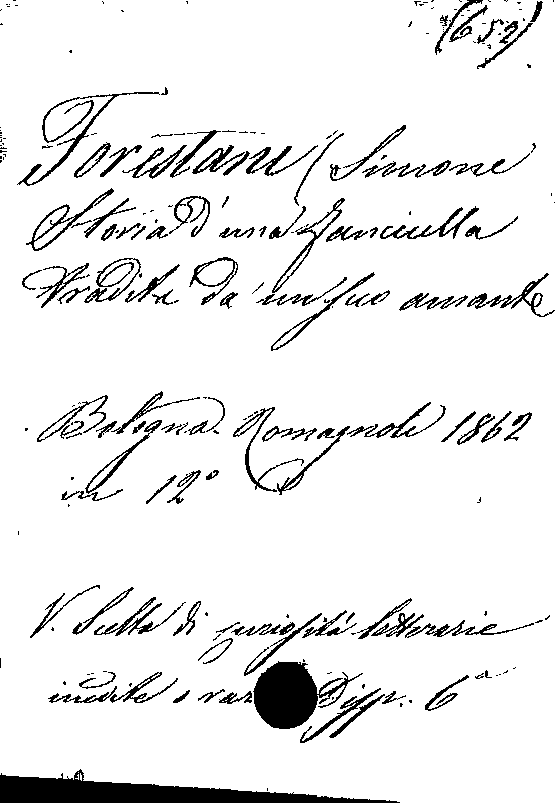 (652)
Forestani (Simone
Storia d'una fanciulla
tradita da un suo amante
Bologna. Romagnoli 1862
in 12°
V. Scelta di curiosità letterarie
inedite o rar Disp. 6ª